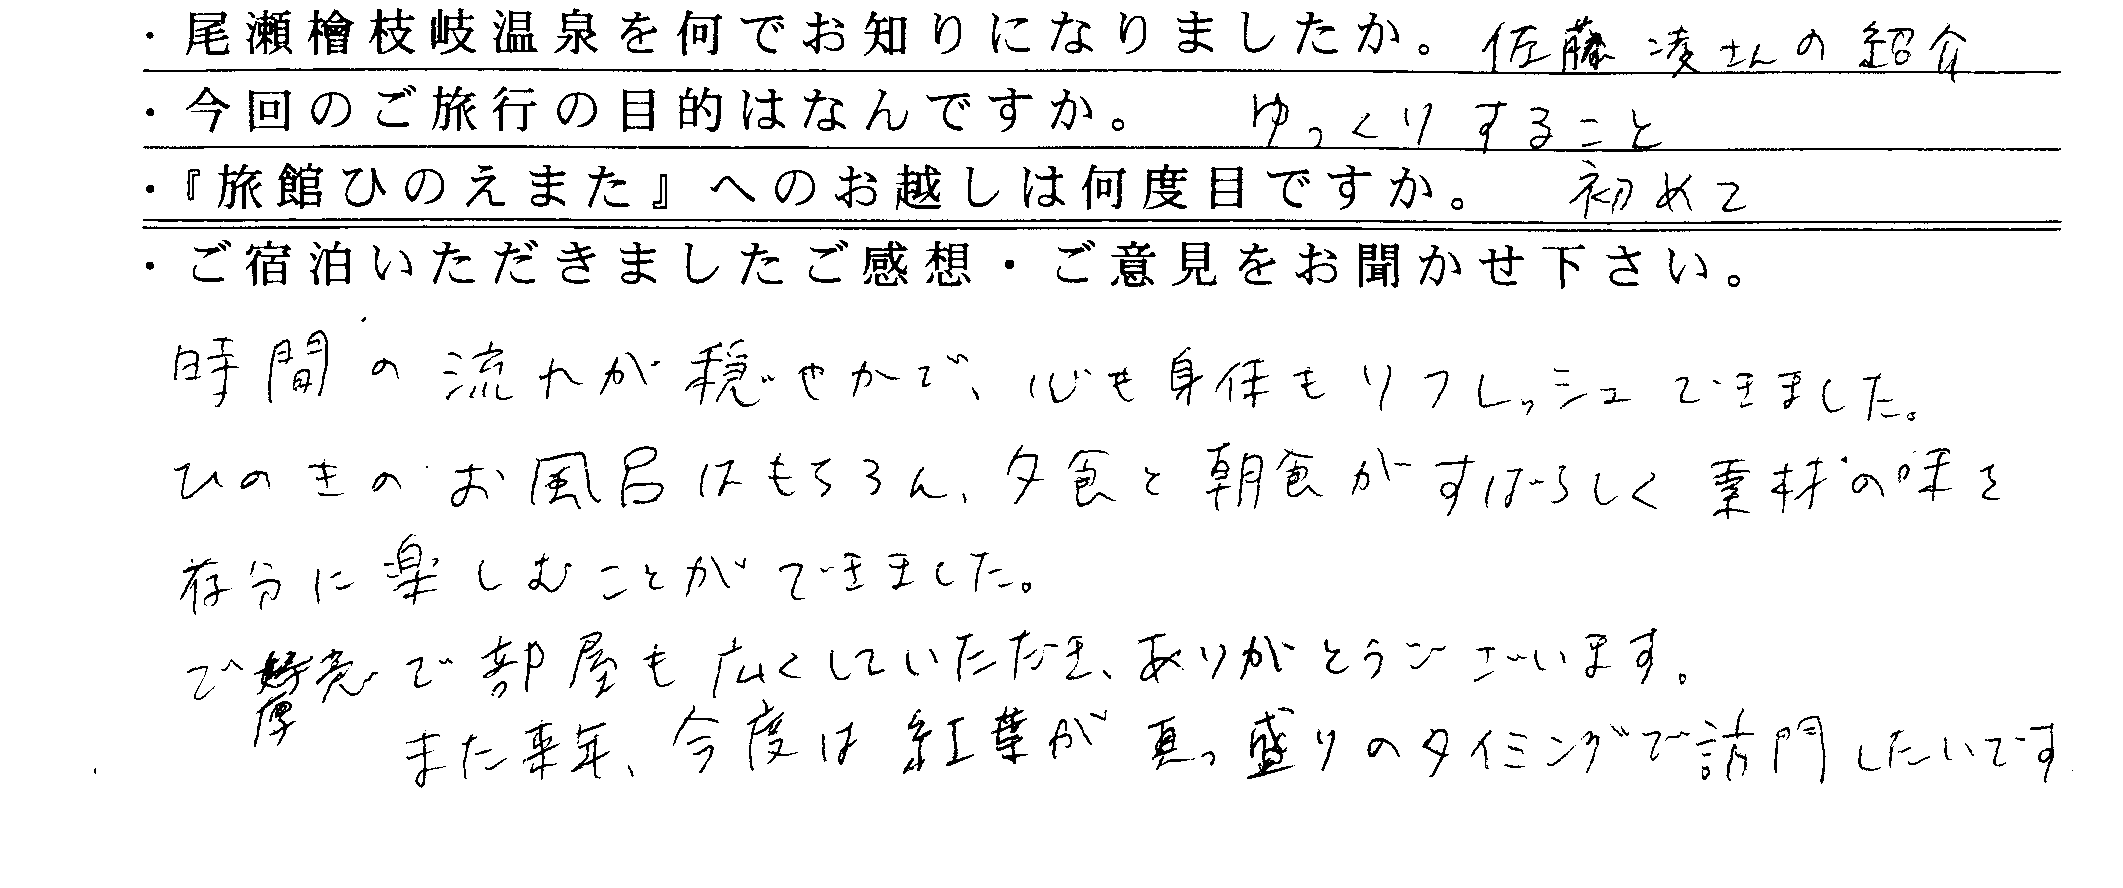 ・尾瀬檜枝岐温泉を何でお知りになりましたか。佐藤凌さんの紹介
・今回のご旅行の目的はなんですか。 ゆっくりすること
・『旅館ひのえまた』へのお越しは何度目ですか。 初めて
・ご宿泊いただきましたご感想・ご意見をお聞かせ下さい。
時間の流れが穏やかで、心も身体もリフレッシュできました。
ひのきのお風呂はもちろん、夕食と朝食がすばらしく素材の味を
存分に楽しむことができました。
ご厚意で部屋も広くしていただき、ありがとうございます。
また来年、今度は紅葉が真っ盛りのタイミングで訪問したいです